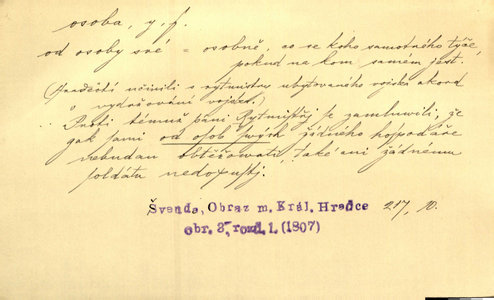 osoba, y, f.
od osoby své = osobně, co se koho samotného týče,
pokud na kom samém jest.
(Hradečtí učinili s rytmistrem ubytovaného vojska akord
o vydržování vojska.)
Proti témuž páni Rytmistři se zamluvili, že
gak sami od osob swých žádného hospodáře
nebudau obtěžowati, také ani žádnému
soldátu nedopustj.
Švenda, Obraz m. Král. Hradce 217, 10.
obr. 3, rozd. 1. (1807)